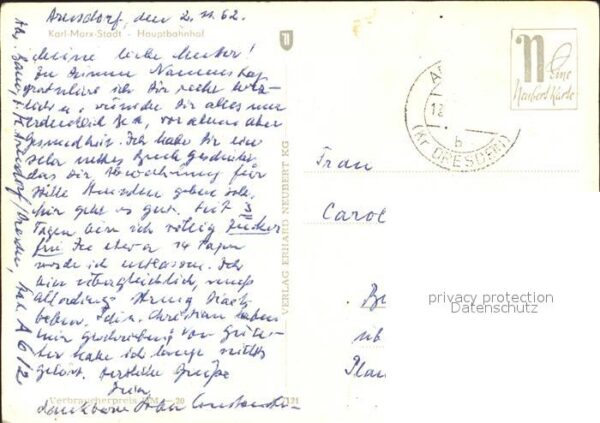 Arnsdorf, den 2.11.62.
Karl-Marx-Stadt - Hauptbahnhof
Meine liebe Mutter!
Zu Deinem Namenstag
gratuliere ich Dir recht herz-
lichen, wünsche Dir alles nur
vor allem aber
Gesundheit. Ich habe Dir ein
sehr nettes Buch geschickt,
das Dir für
stille Stunden geben soll.
Mir geht es gut. Seit 3
Tagen bin ich völlig Zucker
frei. In etwa 14 Tagen
werde ich entlassen. Ich
bin überglücklich, muß
allerdings streng Diät
leben. Felix, Christian haben
mir geschrieben von
habe ich lange nichts
gehört. Herzliche Grüße
Dein
dankbarer Sohn
Verbraucherpreis MDN —,20
121
VERLAG ERHARD NEUBERT KG
n
Eine
Neubert Karte
12
b
(Kr. DRESDEN)
Frau
Carol
Be
üb
Plau
privacy protection
Datenschutz
Arnsdorf/Dresden, A 6/2